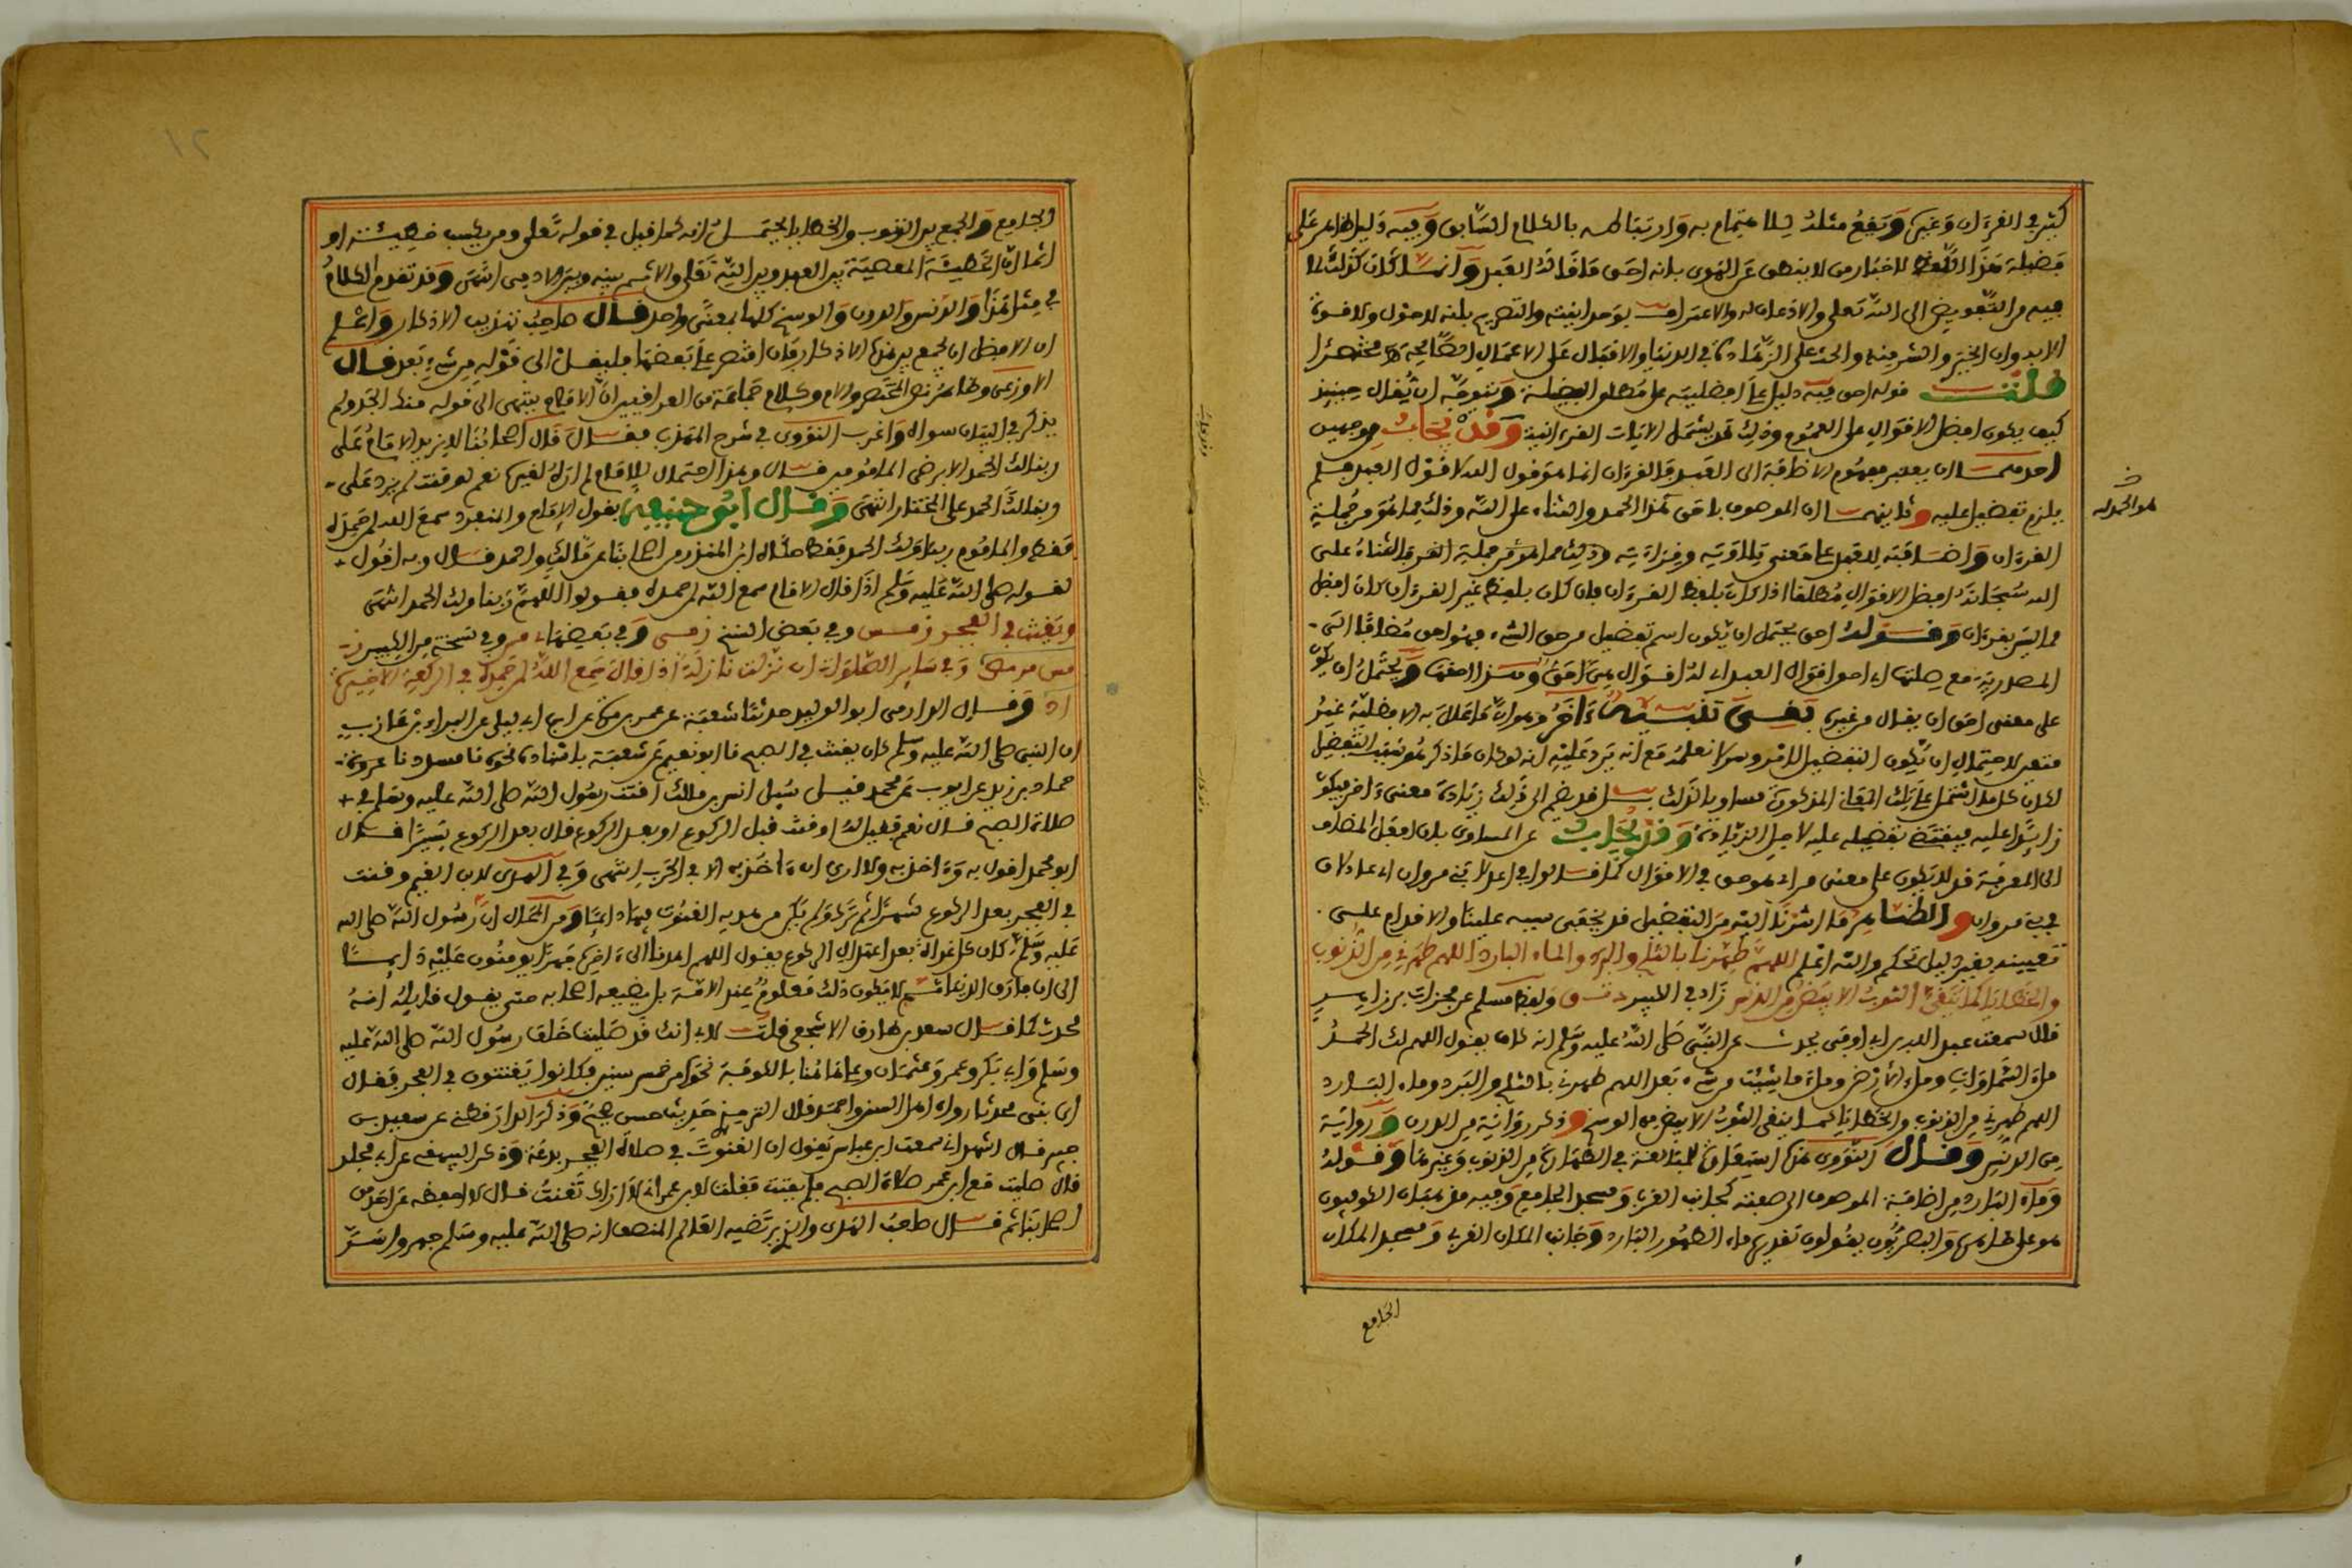 كثير في القرءان وغيره ويقع مثله للاهتمام به وارتباطه بالكلام السابق وفيه دليل ظاهر على
فضيلة هذا اللفظ للاخبار من لا ينطق عن الهوى بانه احق ما قاله العبد وانما كان كذلك لما
فيه من التفويض الى الله تعلى والاذعان له والاعتراف بوحدانيته والتصريح بانه لا حول ولا قوة
الا به وان الخير والشر منه والحث على الزهادة في الدنيا والاقبال على الاعمال الصالحة مختصرا
قلت قوله احق فيه دليل على افضليته على مطلق الفضيلة ويتوجه ان يقال حينئذ
كيف يكون افضل الاقوال على العموم وذلك قد يشمل الايات القرءانية وقد يجاب من وجهين
احدهما ان يعتبر مفهوم الاضافة الى العبد فالقرءان انما هو قول الله لا قول العبد فلم
يلزم تفضيل عليه وثانيهما ان الموصوف باحق هذا الحمد والثناء على الله وذلك مما هو من جملة
القرءان واضافته للعبد على معنى تلاوته وقراءته وذلك مما هو من جملة القرب فالثناء على
الله سبحانه افضل الاقوال مطلقا اذا كان بلفظ القرءان فان كان بلفظ غير القرءان كان افضل
مما ليس بقرءان وقوله احق يحتمل ان يكون اسم تفضيل من حق الشيء فهو احق مضافا الى
المصدرية مع صلتها اي احق اقوال العبد اي له اقوال هي احق وهذا احقها ويحتمل ان يكون
على معنى احق ان يقال من غيره بقي تنبيه ءاخر وهو ان ما علل به الافضلية غير
متعين لاحتمال ان يكون التفضيل لامر وسر لا نعلمه مع انه يرد عليه انه لو كان ما ذكر هو سبب التفضيل
لكان كل ما اشتمل على تلك المعاني المذكورة مساويا لذلك بل قد يضم الى ذلك زيادة معنى ءاخر فيكون
زايدا عليه فيقتضي تفضيله عليه لاجل الزيادة وقد يجاب عن المساوي بان افعل المضاف
الى المعرفة قد لا يكون على معنى من اي هو حق في الاقوال كما قالوا في اعدلا بني مروان اي عادلان
في بني مروان والظاهر ما اشرنا اليه من التفضيل قد يخفى سببه علينا والاقدام على
تعيينه بغير دليل تحكم والله اعلم اللهم طهرنا بالثلج والبرد والماء البارد اللهم طهرني من الذنوب
والخطايا كما ينقى الثوب الابيض من الدنس زاد في الكبير د ت ق ولفظ مسلم عن مجزاة بن زاهر
قال سمعت عبد الله بن ابي اوفى يحدث عن النبي صلى الله عليه وسلم انه كان يقول اللهم لك الحمد
ملء السماوات وملء الارض وملء ما شيئت من شيء بعد اللهم طهرني بالثلج والبرد وماء البارد
اللهم طهرني من الذنوب والخطايا كما ينقى الثوب الابيض من الوسخ وذكر رواية من الدرن ورواية
من الدنس وقال النووي هذه استعارة للمبالغة في الطهارة من الذنوب وغيرها وقوله
وماء البارد من اضافة الموصوف الى صفته كجانب الغربي ومسجد الجامع وفيه مذهبان الكوفيون
هو على ظاهره والبصريون يقولون تقديره ماء الطهور البارد وجانب المكان الغربي ومسجد المكان
الجامع
هو الحمد له
الجامع والجمع بين الذنوب والخطايا يحتمل انه كما قيل في قوله تعلى ومن يكسب خطيئة او
اثما ان الخطيئة المعصية بين العبد وبين الله تعلى والاثم بينه وبين الادمي انتهى وقد تقدم الكلام
في مثل هذا والدنس والدرن والوسخ كلها بمعنى واحد قال صاحب تهذيب الاذكار واعلم
ان الافضل ان يجمع بين هذه الاذكار فان اقتصر على بعضها فليقل الى قوله من شيء بعد قال
الاوزعي وظاهر نص المختصر والام وكلام جماعة من العراقيين ان الامام ينتهي الى قوله منك الجد ولم
يذكر في البيان سواه واغرب النووي في شرح المهذب فقال قال اصحابنا لا يزيد الامام على
ربنا لك الحمد الا برضى المامومين قال وهذا احتمال للامام لم اره لغيره نعم لو قنت لم يزد على
ربنا لك الحمد على المختار انتهى وقال ابو حنيفة يقول الامام والمنفرد سمع الله لمن حمده
فقط والماموم ربنا ولك الحمد فقط حكاه ابن المنذر من اصحابنا عن مالك واحمد قال وبه اقول
لقوله صلى الله عليه وسلم اذا قال الامام سمع الله لمن حمده فقولوا اللهم ربنا ولك الحمد انتهى
ويقنت في الفجر ز مس وفي بعض النسخ ز مسى وفي بعضها مر وفي نسخة من الكبير ز
مس مر مص وفي ساير الصلوات ان نزلت نازلة اذا قال سمع الله لمن حمده في الركعة الاخيرة
اد وقال الدارمي ابو الوليد حدثنا شعبة عن عمرو بن مرة عن ابن ابي ليلى عن البراء بن عازب
ان النبي صلى الله عليه وسلم كان يقنت في الصبح نا ابو نعيم عن شعبة باسناده نحوه نا مسدد نا
حماد بن زيد عن ايوب عن محمد قيل سيل انس بن مالك اقنت رسول الله صلى الله عليه وسلم في
صلاة الصبح قال نعم فقيل له اوقنت قبل الركوع او بعد الركوع قال بعد الركوع يسيرا قال
ابو محمد اقول به وءاخذ به ولا ارى ان ءاخذ به الا في الحرب انتهى وفي الهدي لابن القيم وقنت
في الفجر بعد الركوع شهرا ثم ترك ولم يكن من هديه القنوت فيها دايما ومن المحال ان رسول الله صلى الله
عليه وسلم كان كل غداة بعد اعتدال الركوع يقول اللهم اهدنا الى ءاخره جهرا يومنون عليه دايما
الى ان فارق الدنيا ثم لا يكون ذلك معلوم عند الامة بل يضيعه اصحابه حتى يقول قايله انه
محدث كما قال سعد بن طارق الاشجعي قلت لابي انك قد صليت خلف رسول الله صلى الله عليه
وسلم وابي بكر وعمر وعثمان وعلي هاهنا بالكوفة نحوا من خمس سنين فكانوا يقنتون في الفجر فقال
اي بني محدث رواه اهل السنن واحمد قال الترمذي حديث حسن صحيح وذكر الدارقطني عن سعيد بن
جبير قال اشهد اني سمعت ابن عباس يقول ان القنوت في صلاة الفجر بدعة وذكر البيهقي عن ابي مجلز
قال صليت مع ابن عمر صلاة الصبح فلم يقنت فقلت لابن عمر اني لا اراك تقنت قال لا احفظه عن احد من
اصحابنا ثم قال صاحب الهدي والذي يرتضيه العالم المنصف انه صلى الله عليه وسلم جهر واسر